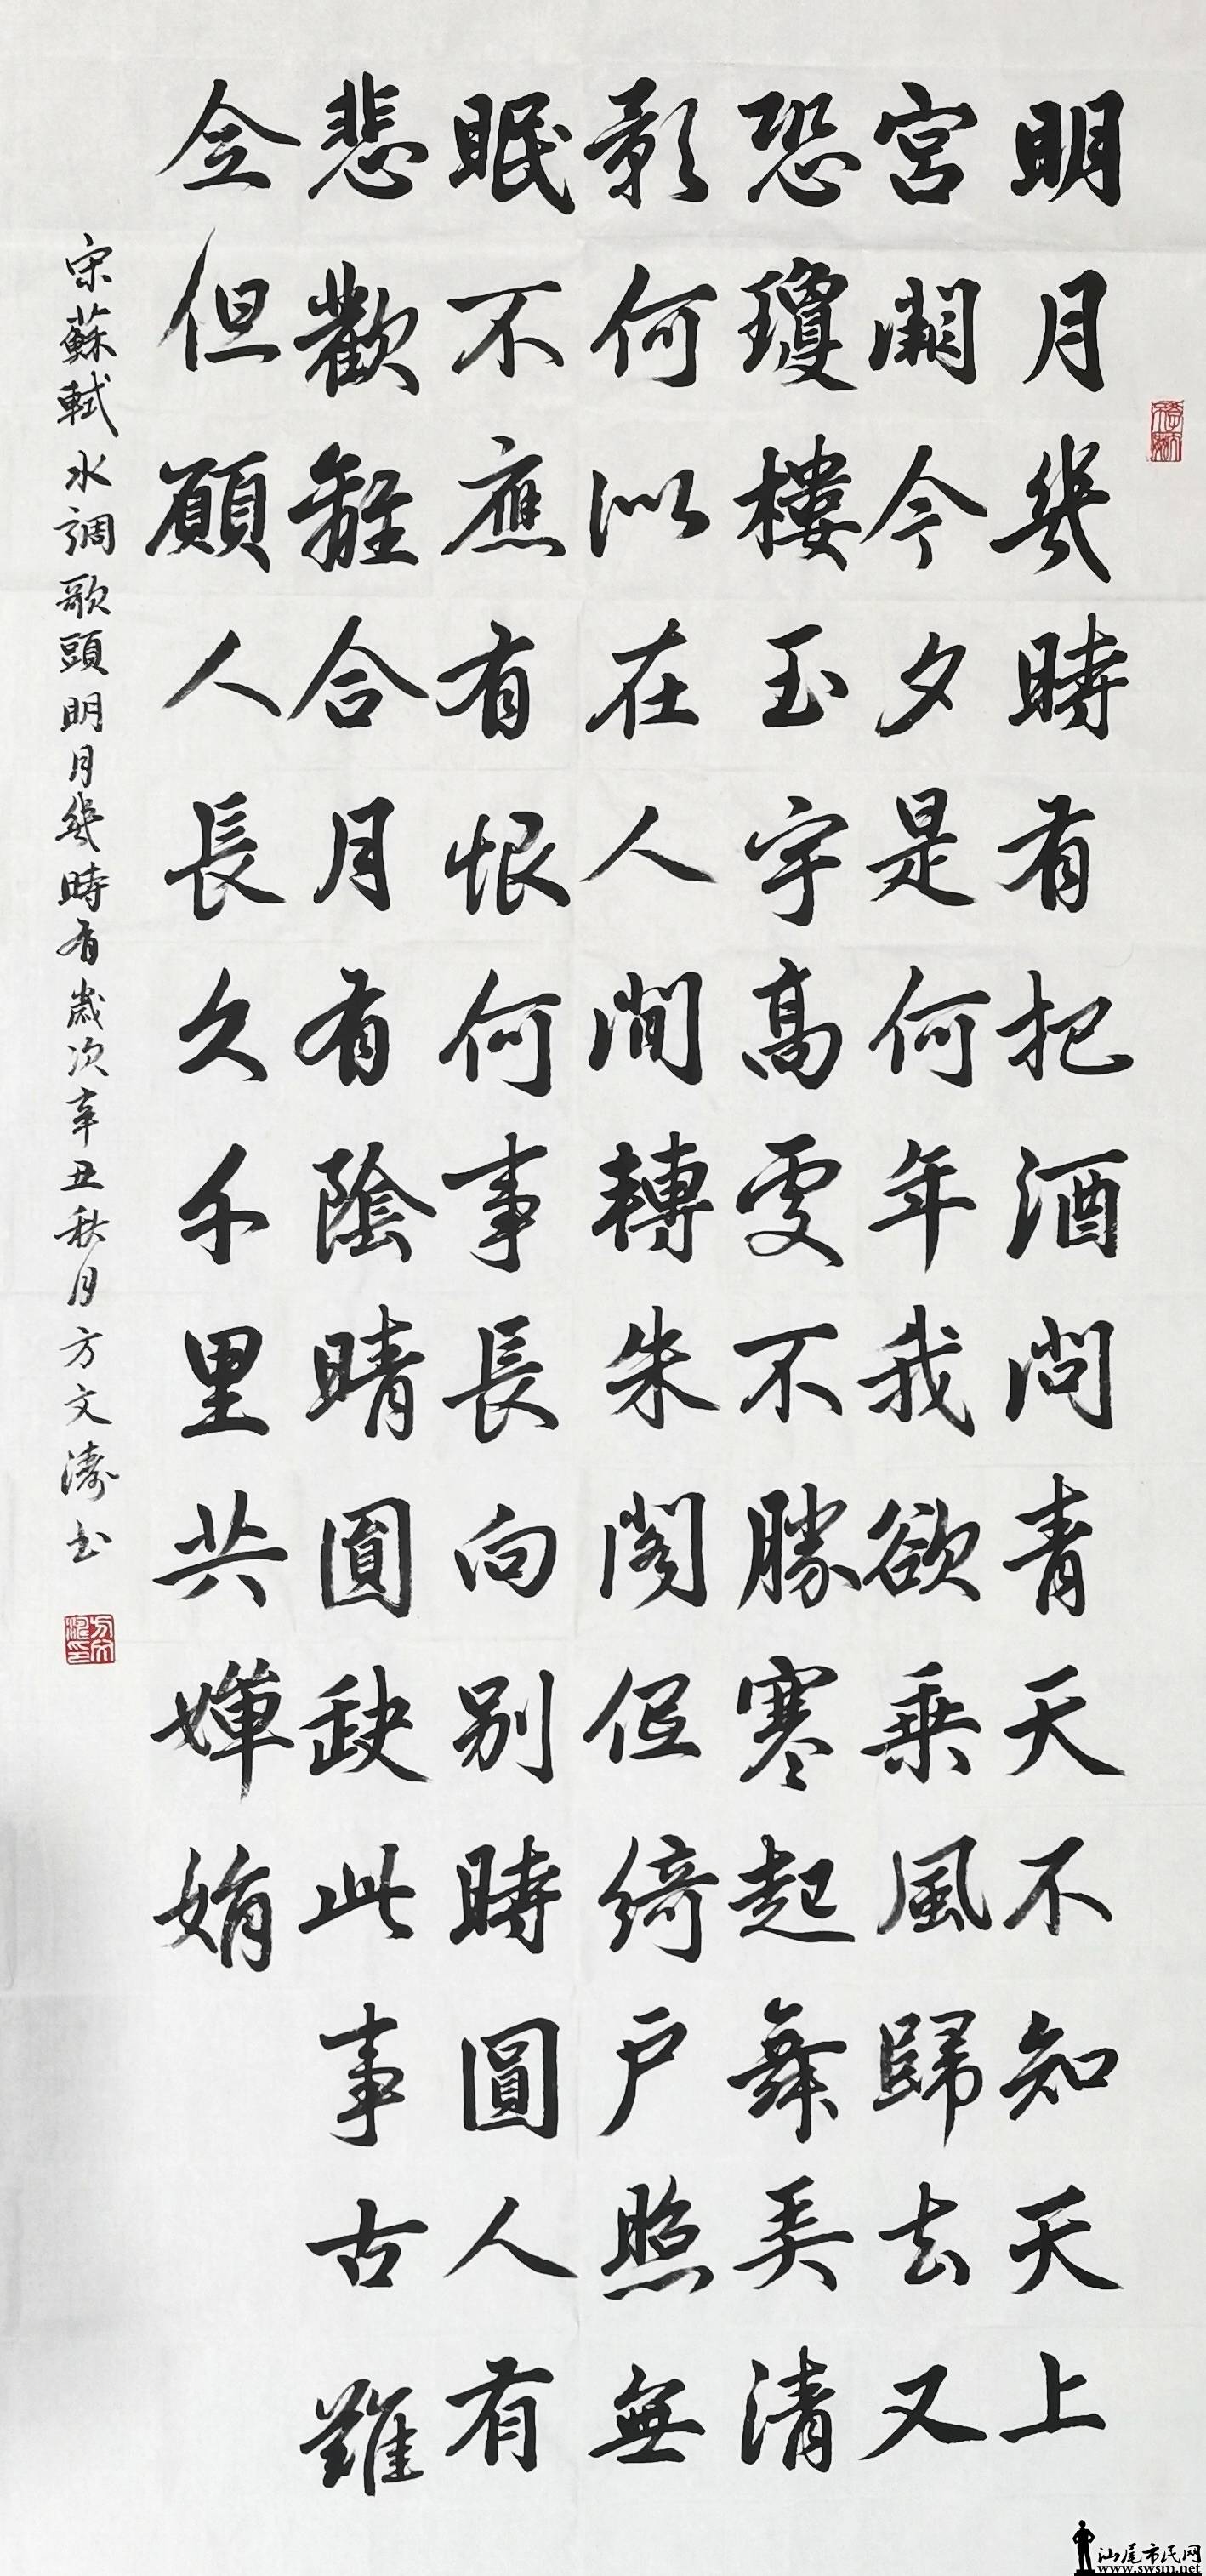 明月幾時有把酒問青天不知天上
宮闕今夕是何年我欲乘風歸去又
恐瓊樓玉宇高處不勝寒起舞弄清
影何似在人間轉朱閣低綺戶照無
眠不應有恨何事長向別時圓人有
悲歡離合月有陰晴圓缺此事古難
全但願人長久千里共嬋娟
宋蘇軾水調歌頭明月幾時有歲次辛丑秋月方文濤書
方文濤印
汕尾市民网
www.swsm.net